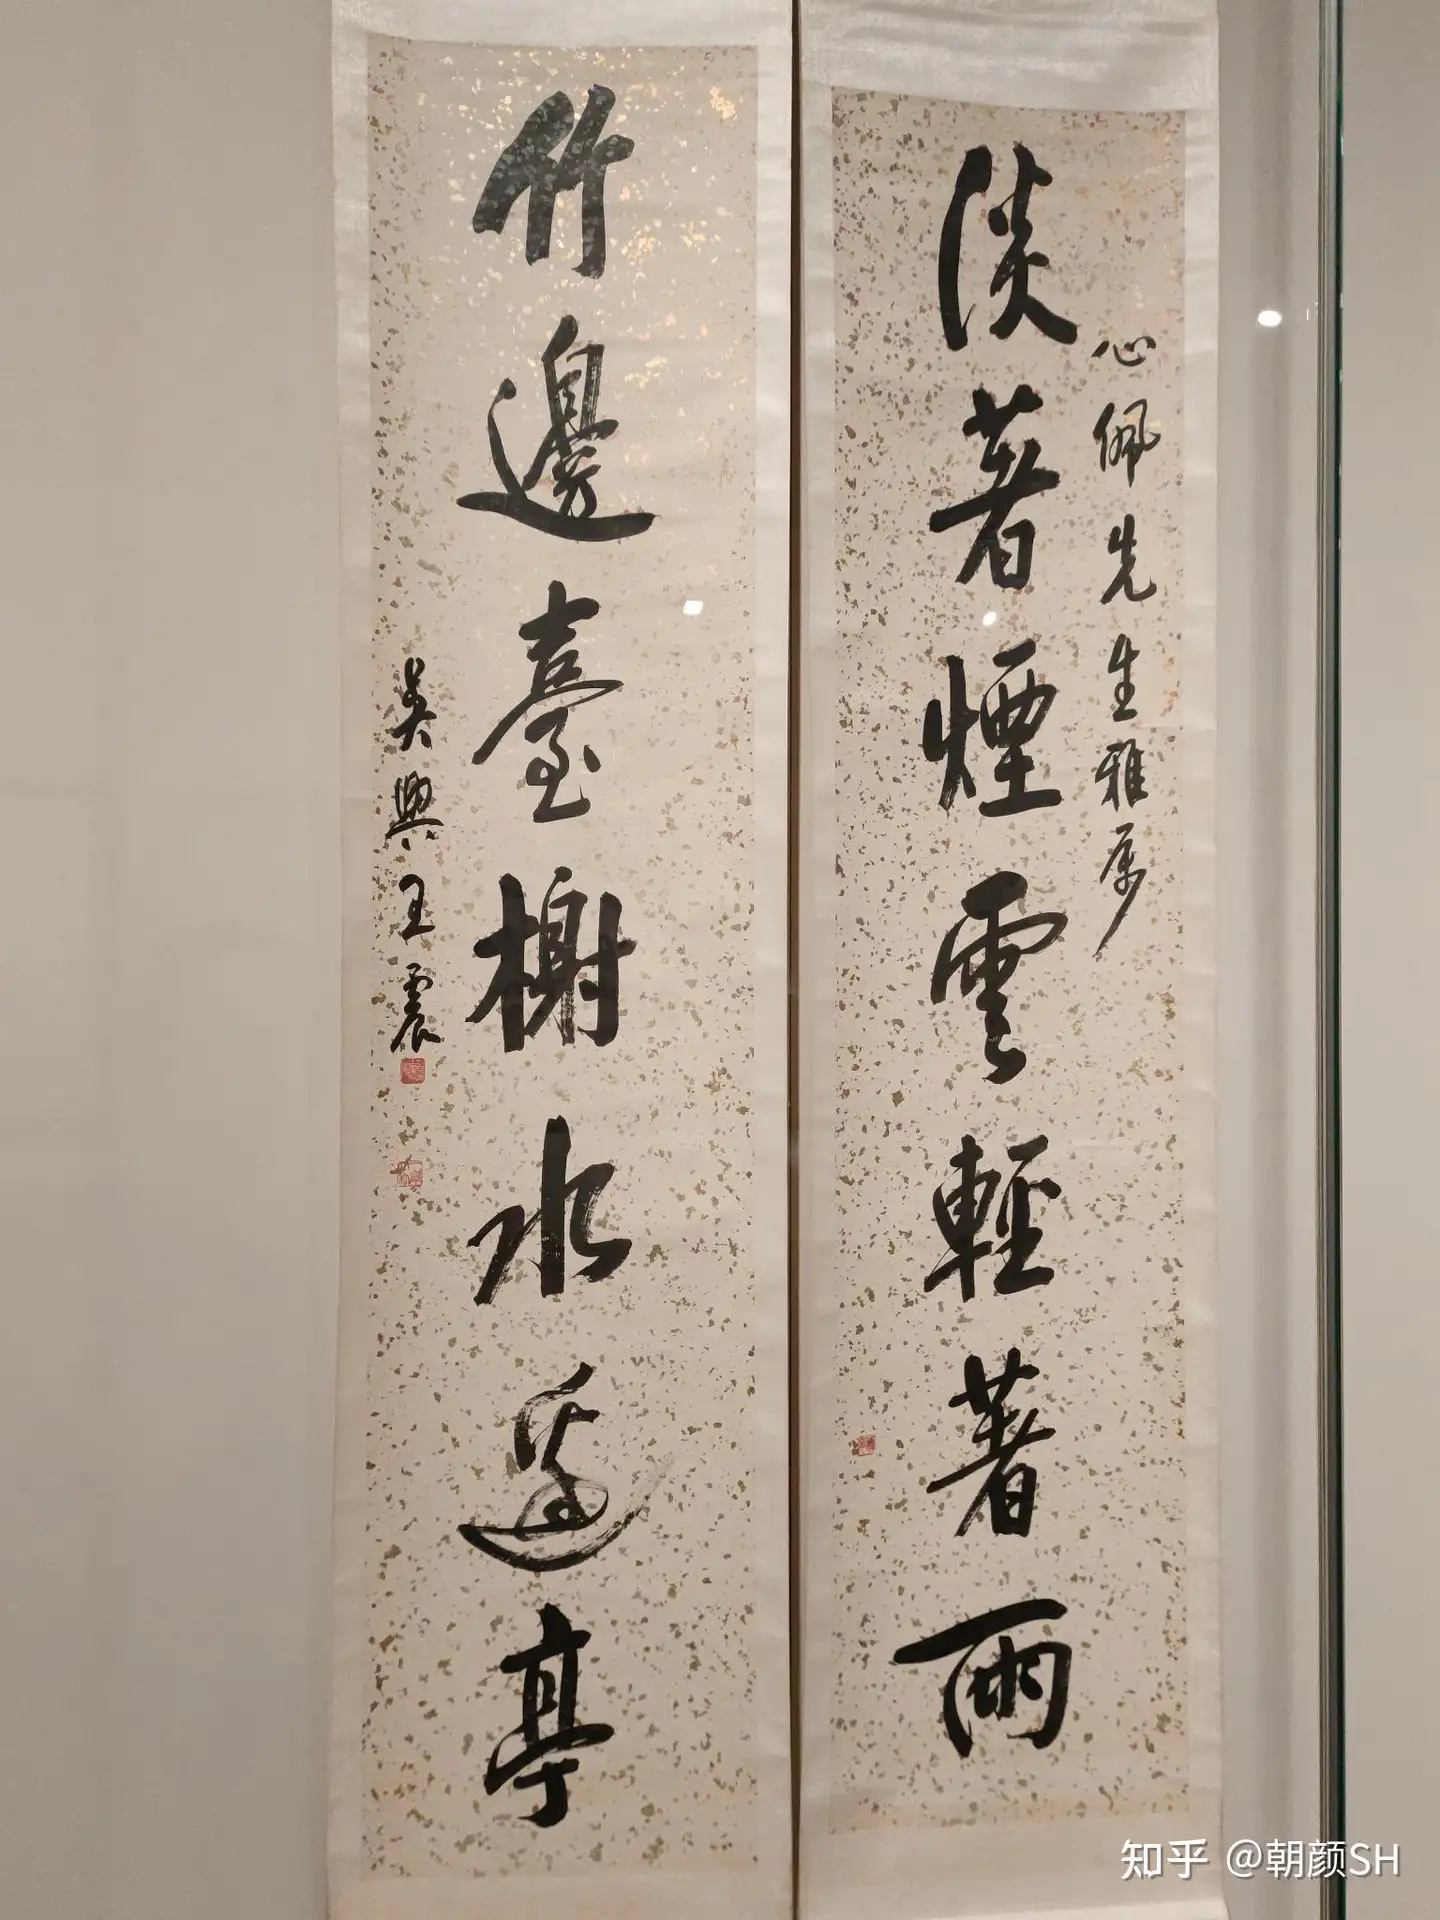 心佩先生雅属
淡著煙雲輕著雨
竹邊臺榭水邊亭
吳興王震
知乎 @朝颜SH